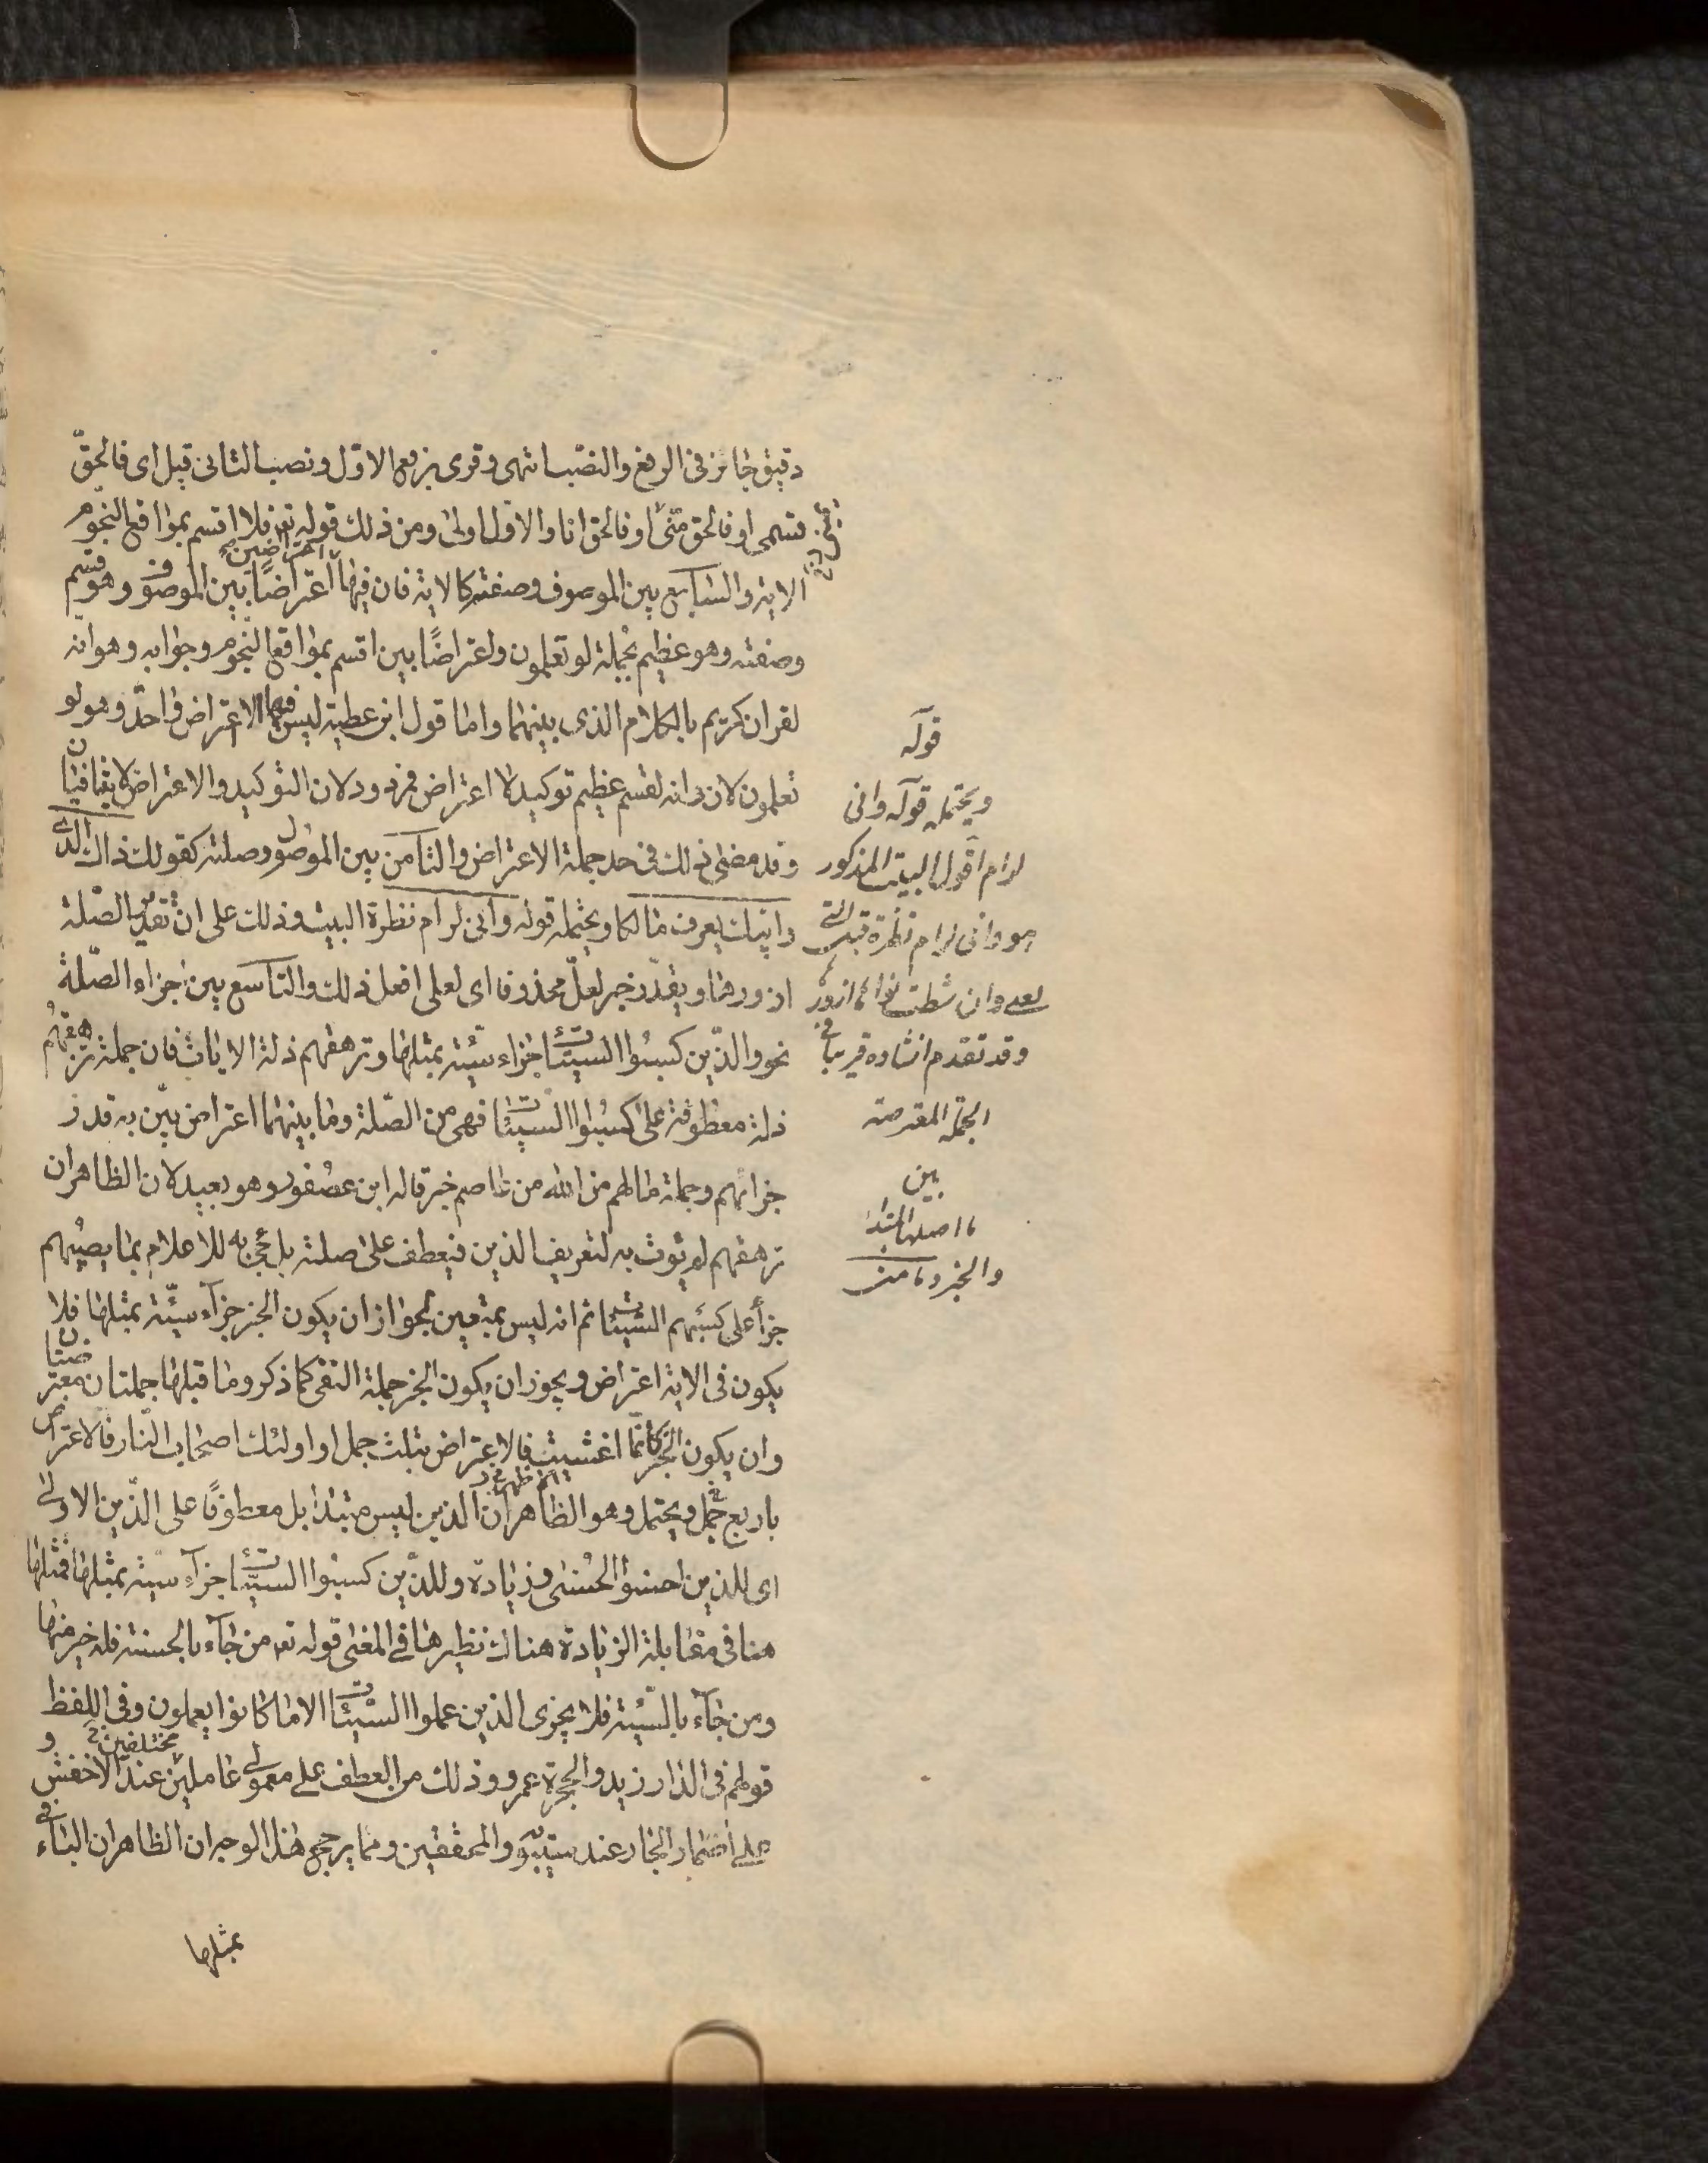 دقيق جائز فى الرفع والنصب انتهى وقرى برفع الاول ونصب الثانى قيل اى فالحقّ
قسمى او فالحق منّى او فالحق انا والاول اولى ومن ذلك قوله تع فلا اقسم بمواقع النجوم
الاية والسابع بين الموصوف وصفته كالاية فان فيها اعتراضين اعتراضًا بين الموصوف وهو قسم
وصفته وهو عظيم بجملة لو تعلمون واعتراضًا بين اقسم بمواقع النجوم وجوابه وهو انّه
لقران كريم بالكلام الذى بينهما واما قول ابن عطية ليس فيها الا اعتراض واحدّ وهو لو
تعلمون لان وانه لقسم عظيم توكيد لا اعتراض فمردود لان التوكيد والاعتراض لا يتنافيان
وقد مضى ذلك فى حد جملة الاعتراض والثامن بين الموصول وصلته كقولك ذاك الذى
وابيك يعرف مالكا ويحتمله قوله وانى لرام نظرة البيت وذلك على ان تقدير الصّلة
ازورها ويقدّر خبر لعلّ محذوفا اى لعلى افعل ذلك والتاسع بين اجزاء الصّلة
نحو والذّين كسبوا السيّئات جزاء سيّئة بمثلها وترهقهم ذلة الايات فان جملة ترهقهم
ذلة معطوفة على كسبوا السيئات فهى من الصّلة وما بينهما اعتراض بيّن به قدر
جزائهم وجملة ما لهم من الله من عاصم خبر قاله ابن عصفور وهو بعيد لان الظاهر ان
ترهقهم لم يؤت به لتعريف الذين فيعطف على صلته بل جئ به للاعلام بما يصيبهم
جزأ على كسبهم السّيئات ثم انه ليس بمتعين لجواز ان يكون الخبر جزآء سيّئة بمثلها فلا
يكون فى الاية اعتراض ويجوز ان يكون الخبر جملة النفى كما ذكر وما قبلها جملتان معترضتان
وان يكون الخبر كانّما اغشيت فالاعتراض بثلث جمل او اولئك اصحاب النّار فالاعتراض
باربع جمل ويحتمل وهو الظاهر ان الذين ليس مبتدا بل معطوفًا على الذّين الاولى
اى للذين احسنوا الحسنى وزيادة وللذّين كسبوا السيّئات جزآء سيئة بمثلها فمثلها
هنا فى مقابلة الزيادة هناك نظيرها فى المعنى قوله تع من جآء بالحسنة فله خير منها
ومن جآء بالسّيئة فلا يجزى الذين عملوا السّيّئات الا ما كانوا يعملون وفى اللفظ
قولهم فى الدار زيد والحجرة عمرو وذلك من العطف على معمولى عاملين مختلفين عند الاخفش و
على اضمار الجار عند سيبويه والمحققين ومما يرجح هذا الوجه ان الظاهر ان البآء فى
بمثلها
قوله
ويحتمله قوله وانى
لرام اقول البيت المذكور
هو وانى لرام نظرة قبل التى
لعلى وان شطت نواها ازورها
وقد تقدم انشاده قريبا فى
الجملة المعترضة
بين
ما اصله المبتدا
والخبر